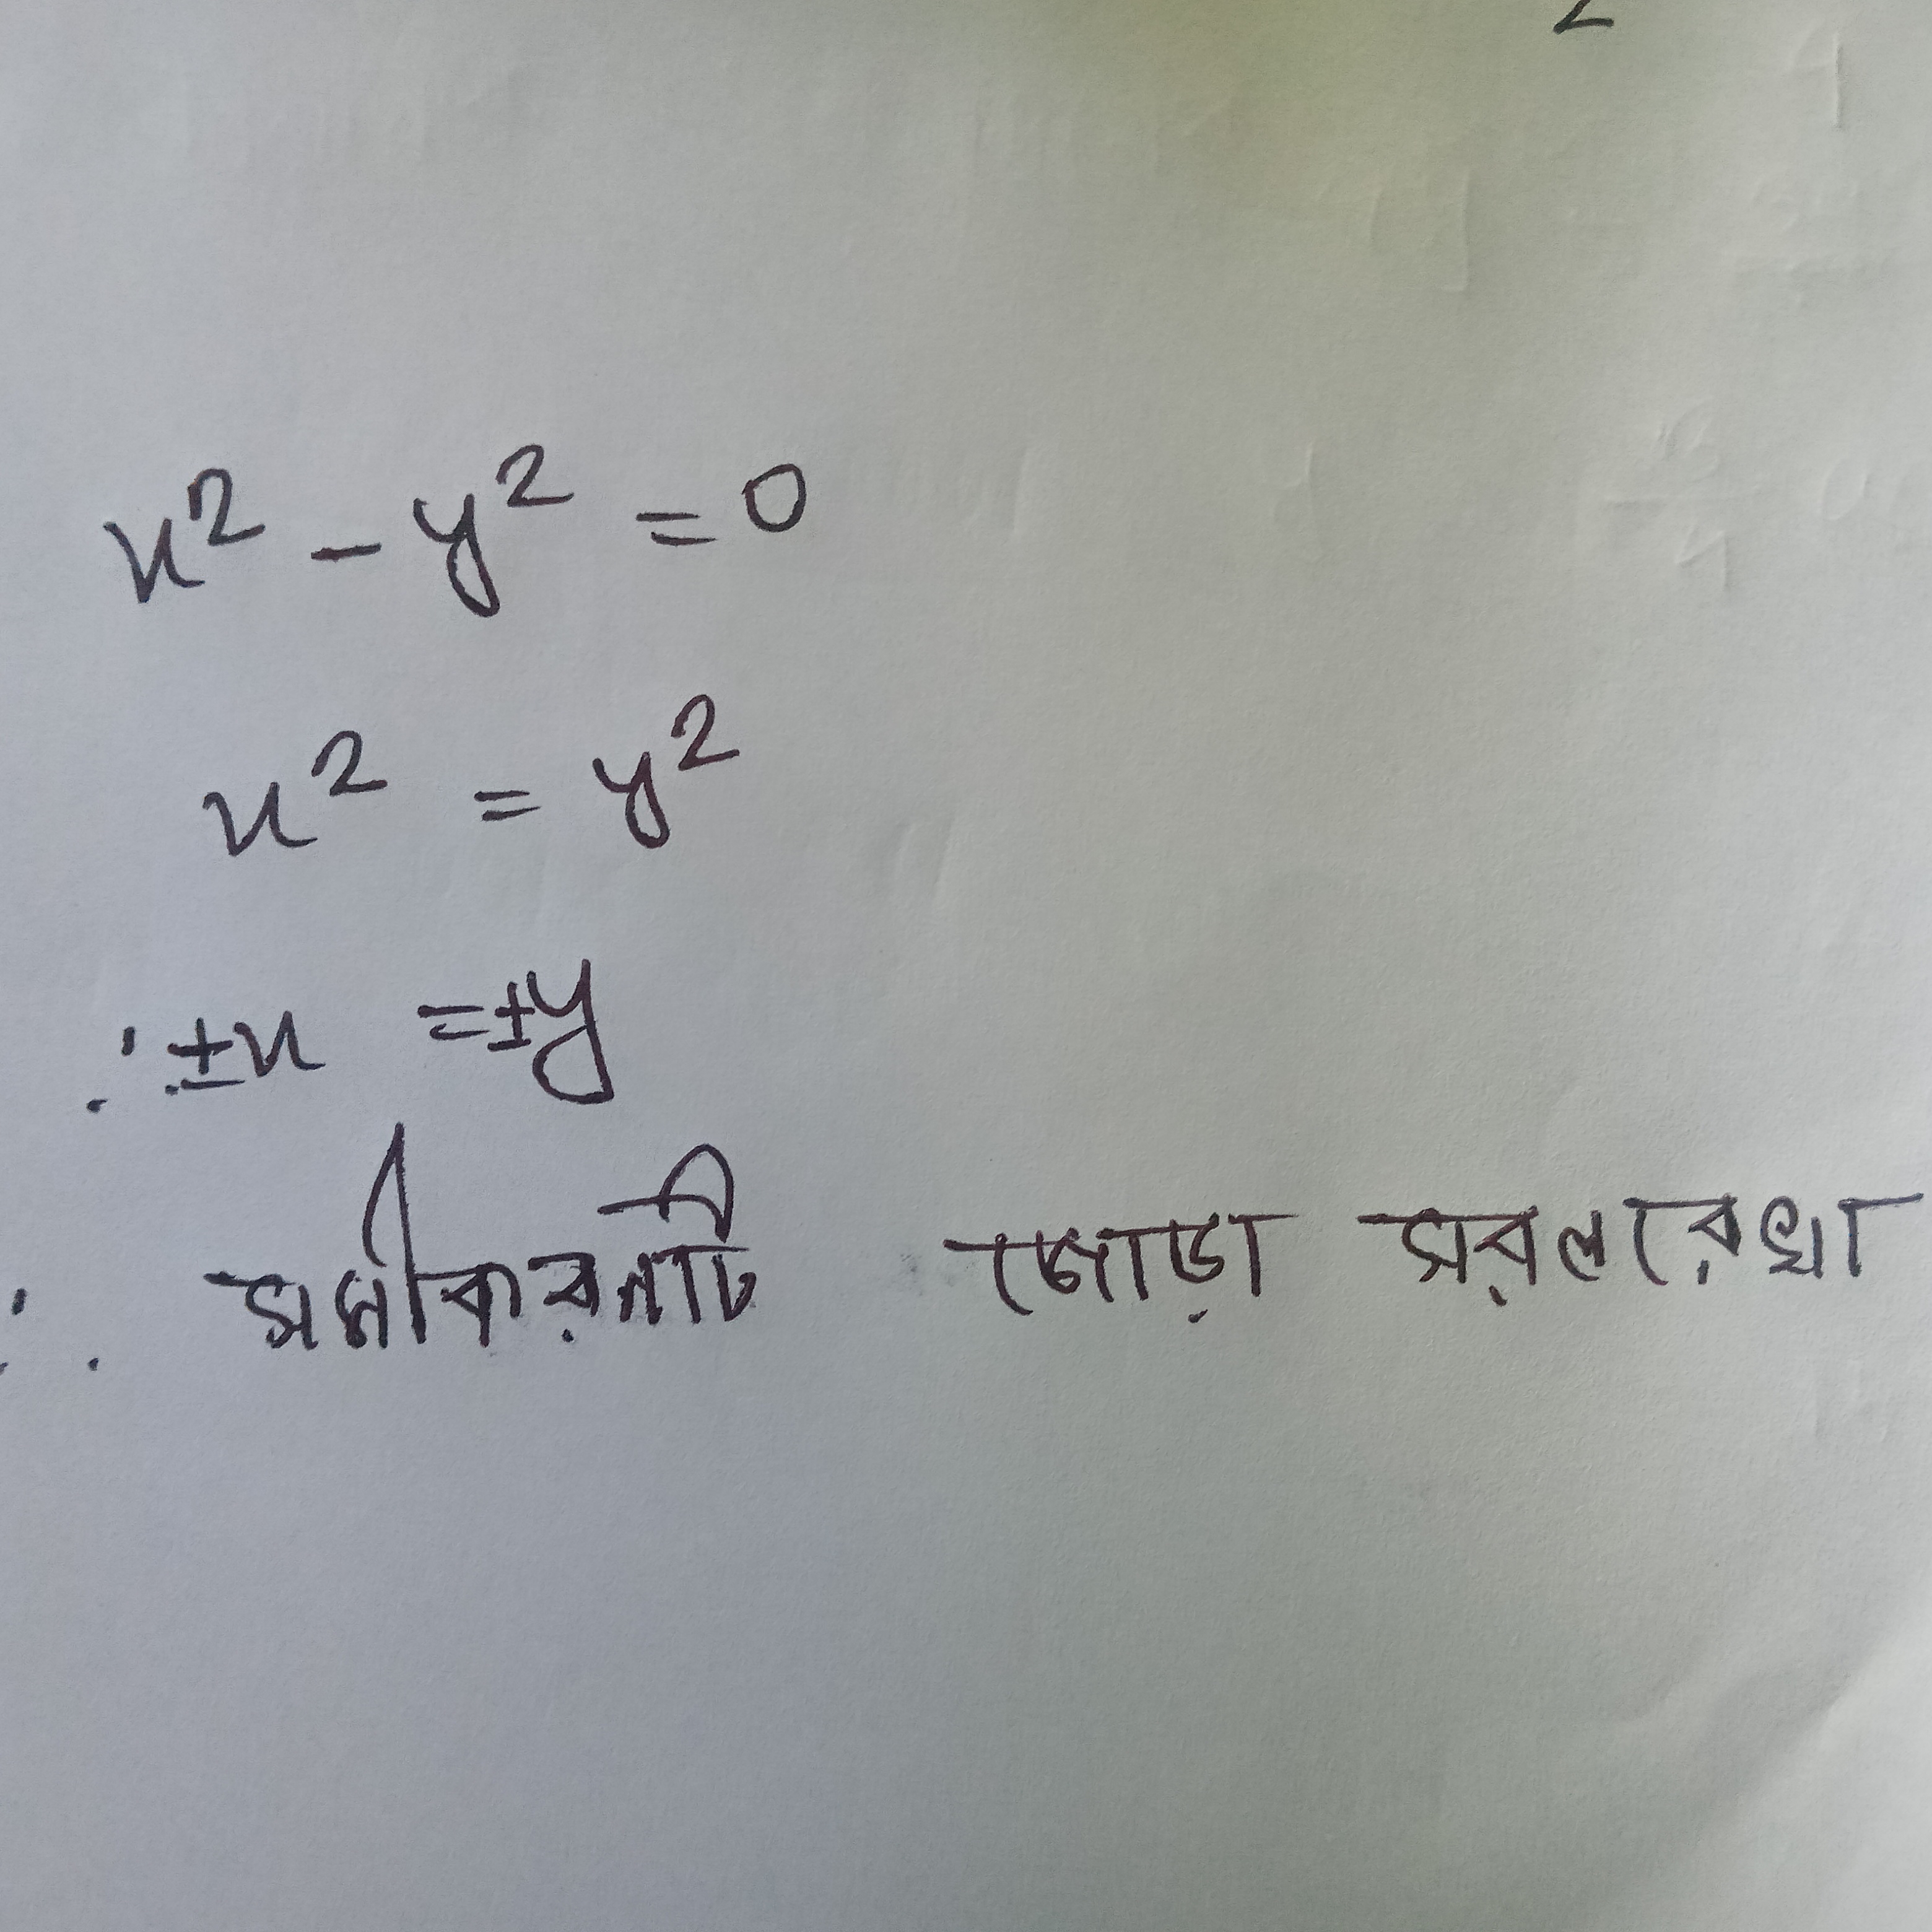 x² - y² = 0
x² = y²
∴ ±x = ±y
∴ সমীকরনটি জোড়া সরলরেখা